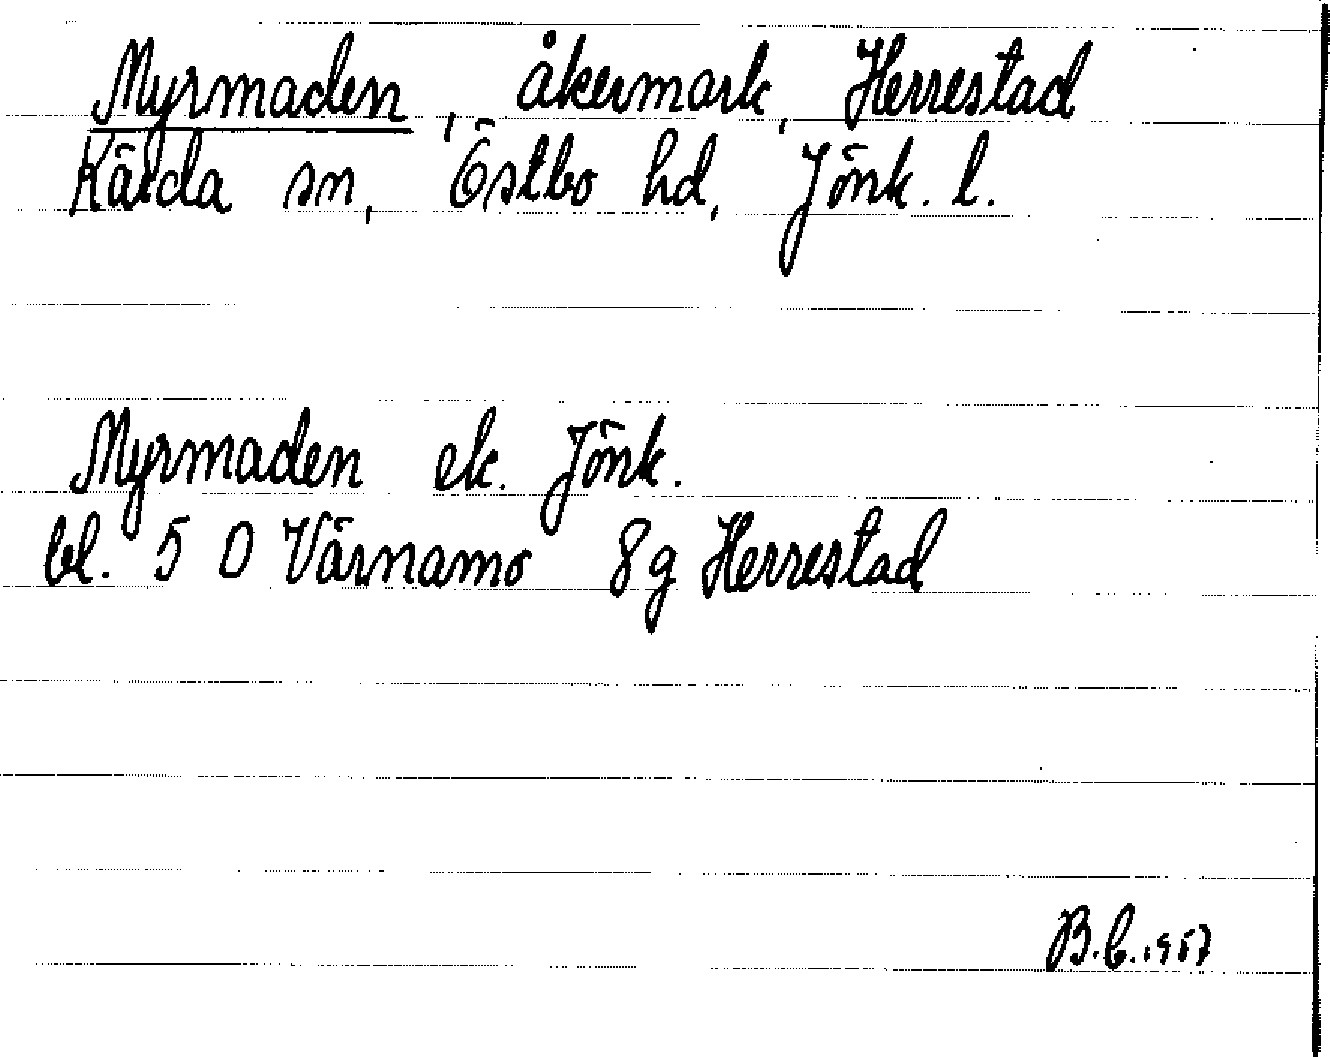 Myrmaden, åkermark, Herrestad
Kärda sn, Östbo hd, Jönk. l.
Myrmaden ek. Jönk.
bl. 5 D Värnamo 8g Herrestad
B.C. 1957